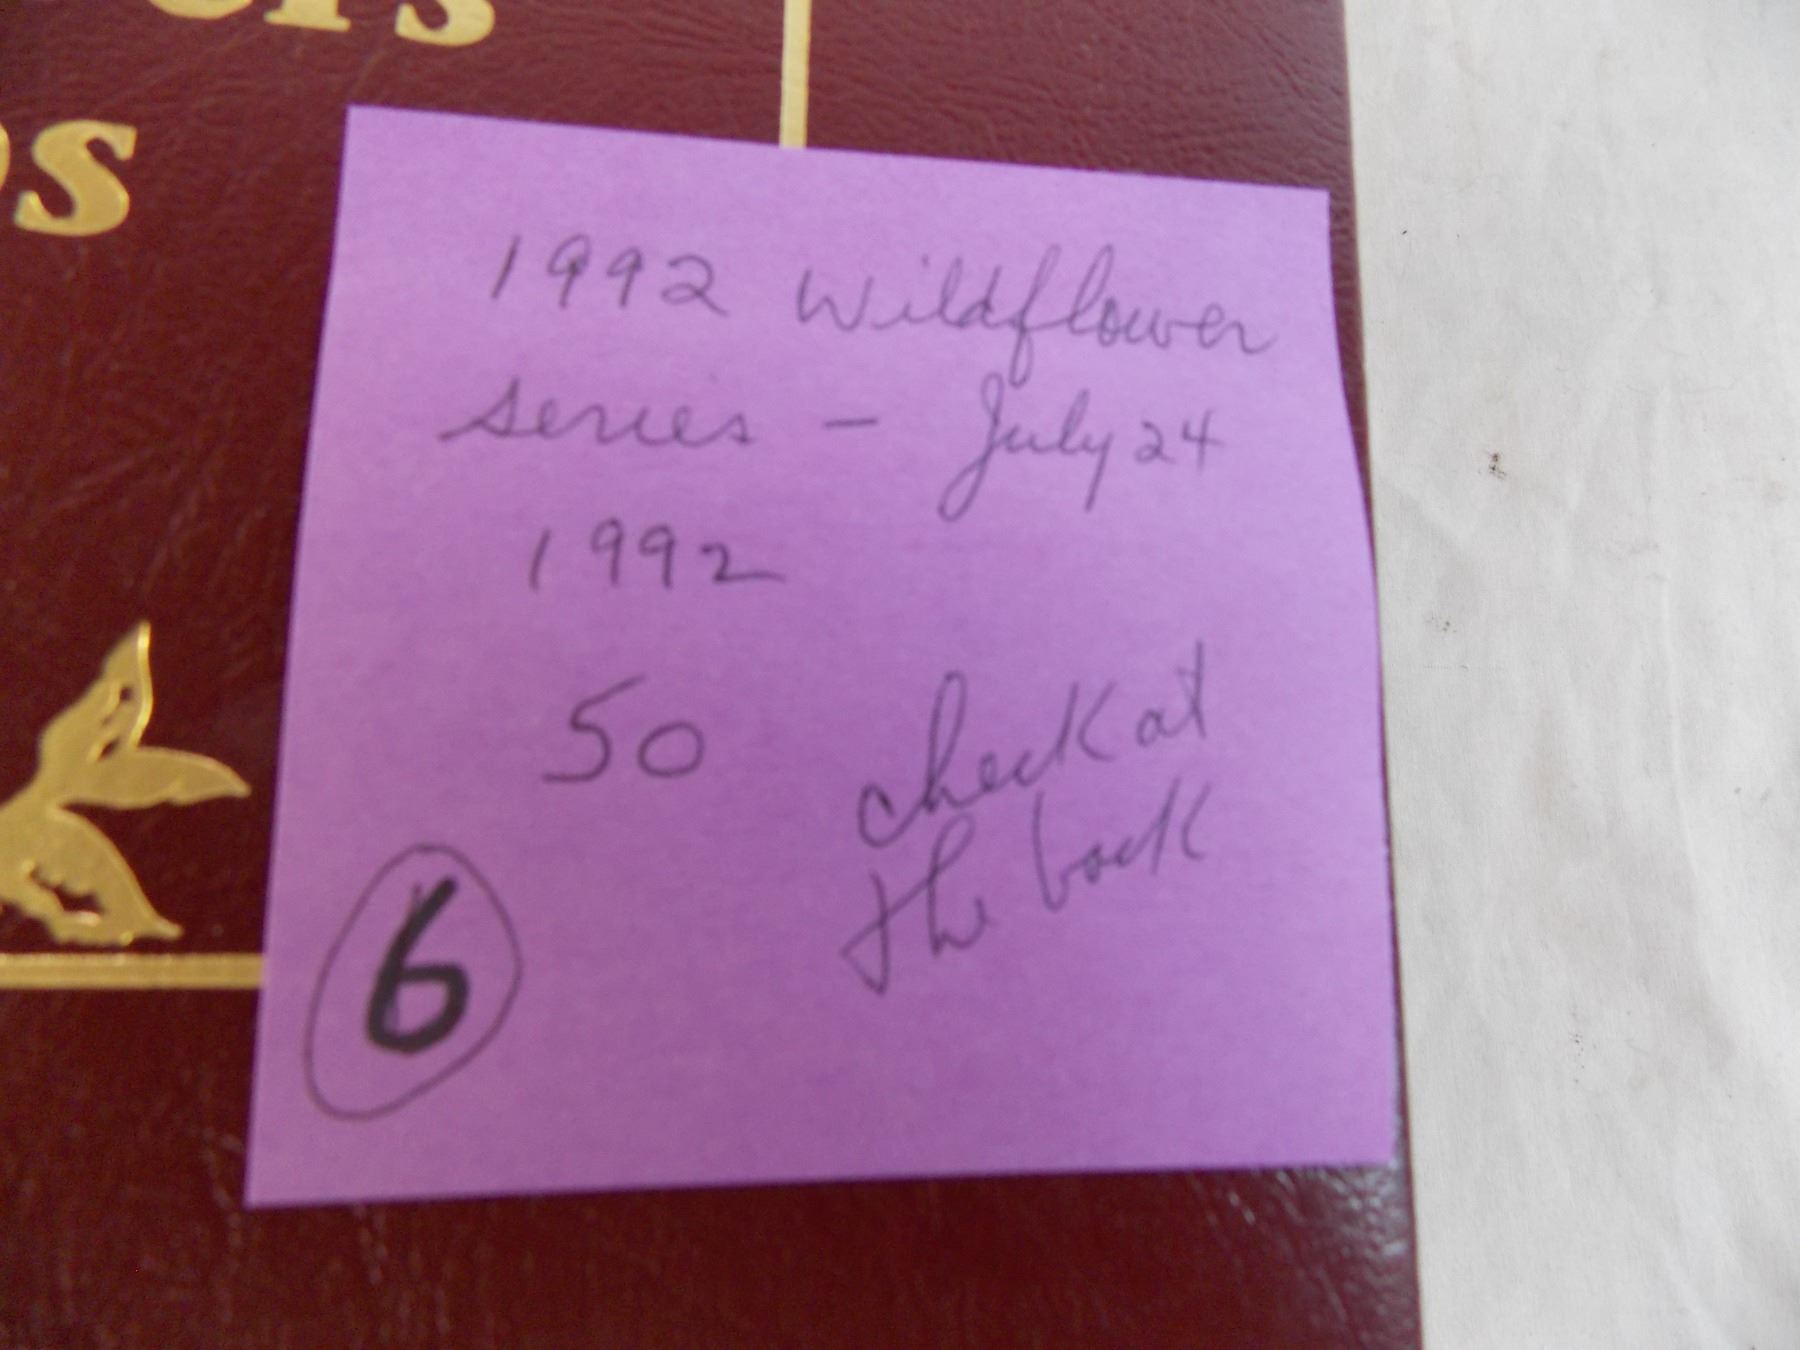 1992 Wildflower
series - July 24
1992
50
check at
the back
6